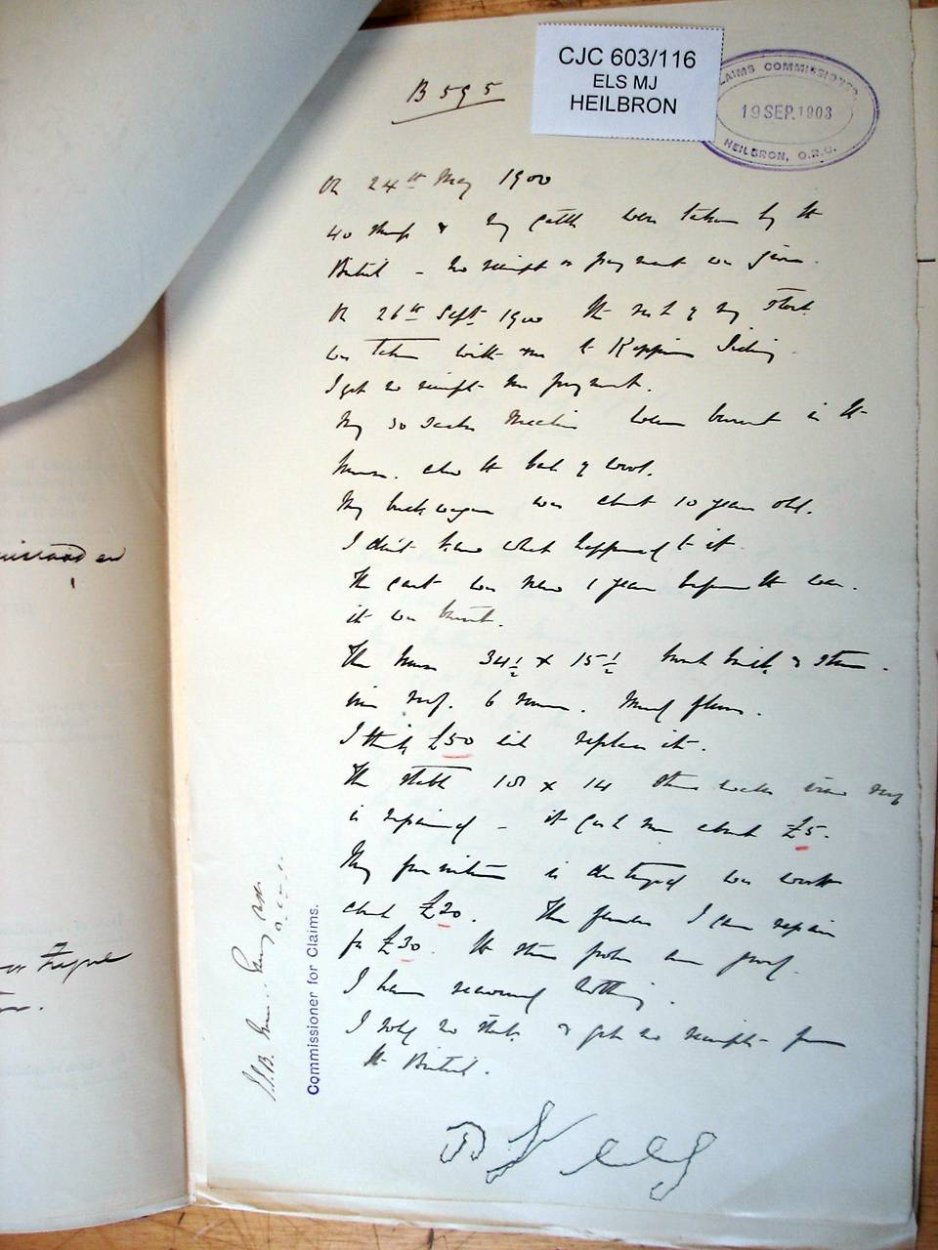 B 595
CJC 603/116
ELS MJ
HEILBRON
CLAIMS COMMISSION
19 SEP. 1903
HEILBRON, O.R.C.
On 24th May 1900
40 sheep & my cattle were taken by the
British – no receipt or payment was given.
On 26th Sept. 1900 the rest of my stock
was taken with me to Koppies Siding
I got no receipt nor payment.
My 30 sacks mealies were burnt in the
house. also the bale of wool.
My buck wagon was about 10 years old.
I don't know what happened to it.
The cart was new 1 year before the war.
it was burnt.
The house 34½ x 15½ burnt brick & stone.
iron roof. 6 rooms. Mud floors.
I think £50 will replace it.
The stable 18 x 14 stone walls iron roof
is repaired – it cost me about £5.
My furniture is destroyed was worth
about £20. The fences I can repair
for £30. The stone poles are good.
I have received nothing.
I sold no stock & got no receipts from
the British.
Commissioner for Claims.